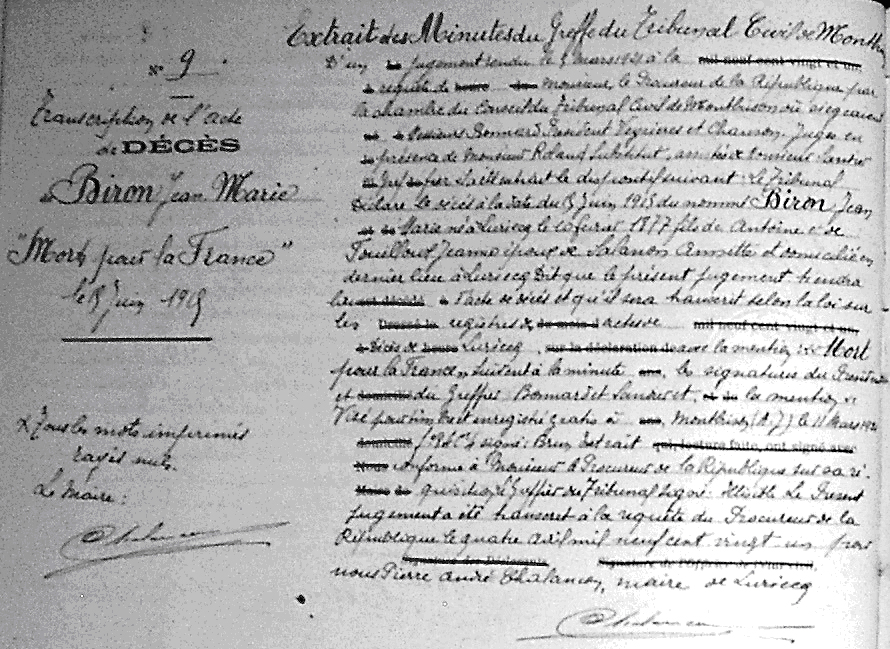 N° 9
Transcription de l'acte
de DÉCÈS
de Biron Jean Marie
"Mort pour la France"
le 8 juin 1915
x Tous les mots imprimés
rayés nuls.
Le Maire :
Chalancon
Extrait des Minutes du Greffe du Tribunal Civil de Montb
D'un jugement rendu le mars 1921 à la mil neuf cent vingt et un,
requête de heure du Monsieur, le Procureur de la République par
la chambre du Conseil du Tribunal Civil de Montbrison où siégeaient
Messieurs Bonnard Président Veyrines et Chanson Juges en
présence de Monsieur Roland Substitut, assistés de Monsieur
Greffier il a été extrait le dispositif suivant : Le Tribunal
Déclare le décès à la date du 8 Juin 1915 du nommé Biron Jean
Marie né à Luriecq le février 1877 fils de Antoine & de
Fouilloux Jeanne époux de Salanon et domicilié en
dernier lieu à Luriecq Dit que le présent jugement tiendra
lieu d'acte de décès et qu'il sera transcrit selon la loi sur
les registres de actes de mil neuf cent vingt et un,
décès de heure Luriecq, sur la déclaration de avec la mention Mort
pour la France, Suivent à la minute les signatures du Président
et du Greffier Bonnard et la mention
Visé pour timbre et enregistré gratis à Montbrison (A.J) le 11 Mars 1921
signé : Brun Extrait qui, lecture faite, ont signé avec
Nous conforme à Monsieur le Procureur de la République sur sa ré-
quisition, le Greffier du Tribunal signé : Le Présent
jugement a été transcrit à la requête du Procureur de la
République le quatre avril mil neuf cent vingt un par
Signature des Déclarants Signature de l'Officier de l'état civil,
nous Pierre André Chalancon, maire de Luriecq
Chalancon